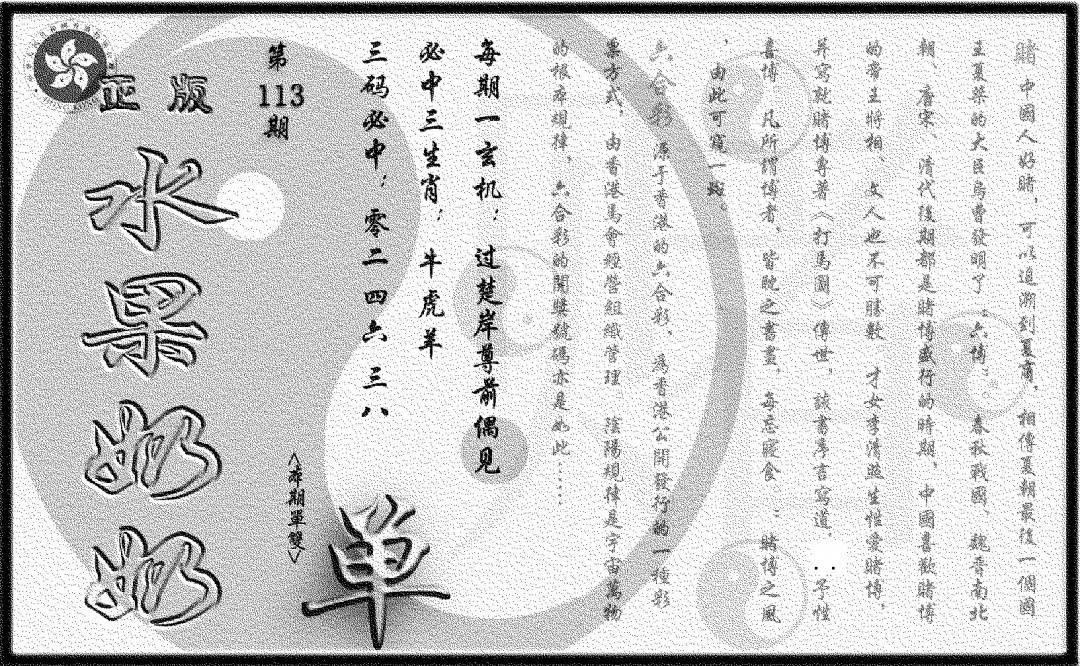 賭 中國人好賭，可以追溯到夏商，相傳夏朝最後一個國
王夏桀的大臣烏曹發明了：六博：。春秋戰國、魏晉南北
朝、唐宋、清代後期都是賭博盛行的時期，中國喜歡賭博
的帝王將相 文人也不可勝數 才女李清照生性愛賭博，
并寫就賭博專著《打馬圖》傳世，該書序言寫道，：予性
喜博，凡所謂博者，皆耽之晝盡，每忘寢食 ：賭博之風
，由此可窺一斑。
六合彩 源于香港的六合彩，為香港公開發行的一種彩
票方式，由香港馬會經營組織管理。陰陽規律是宇宙萬物
的根本規律，六合彩的開獎號碼亦是如此……
每期一玄机：过楚岸尊前偶见
必中三生肖：牛虎羊
三码必中：零二 四六 三八
第
113
期
<本期單雙>
单
正版
水果奶奶